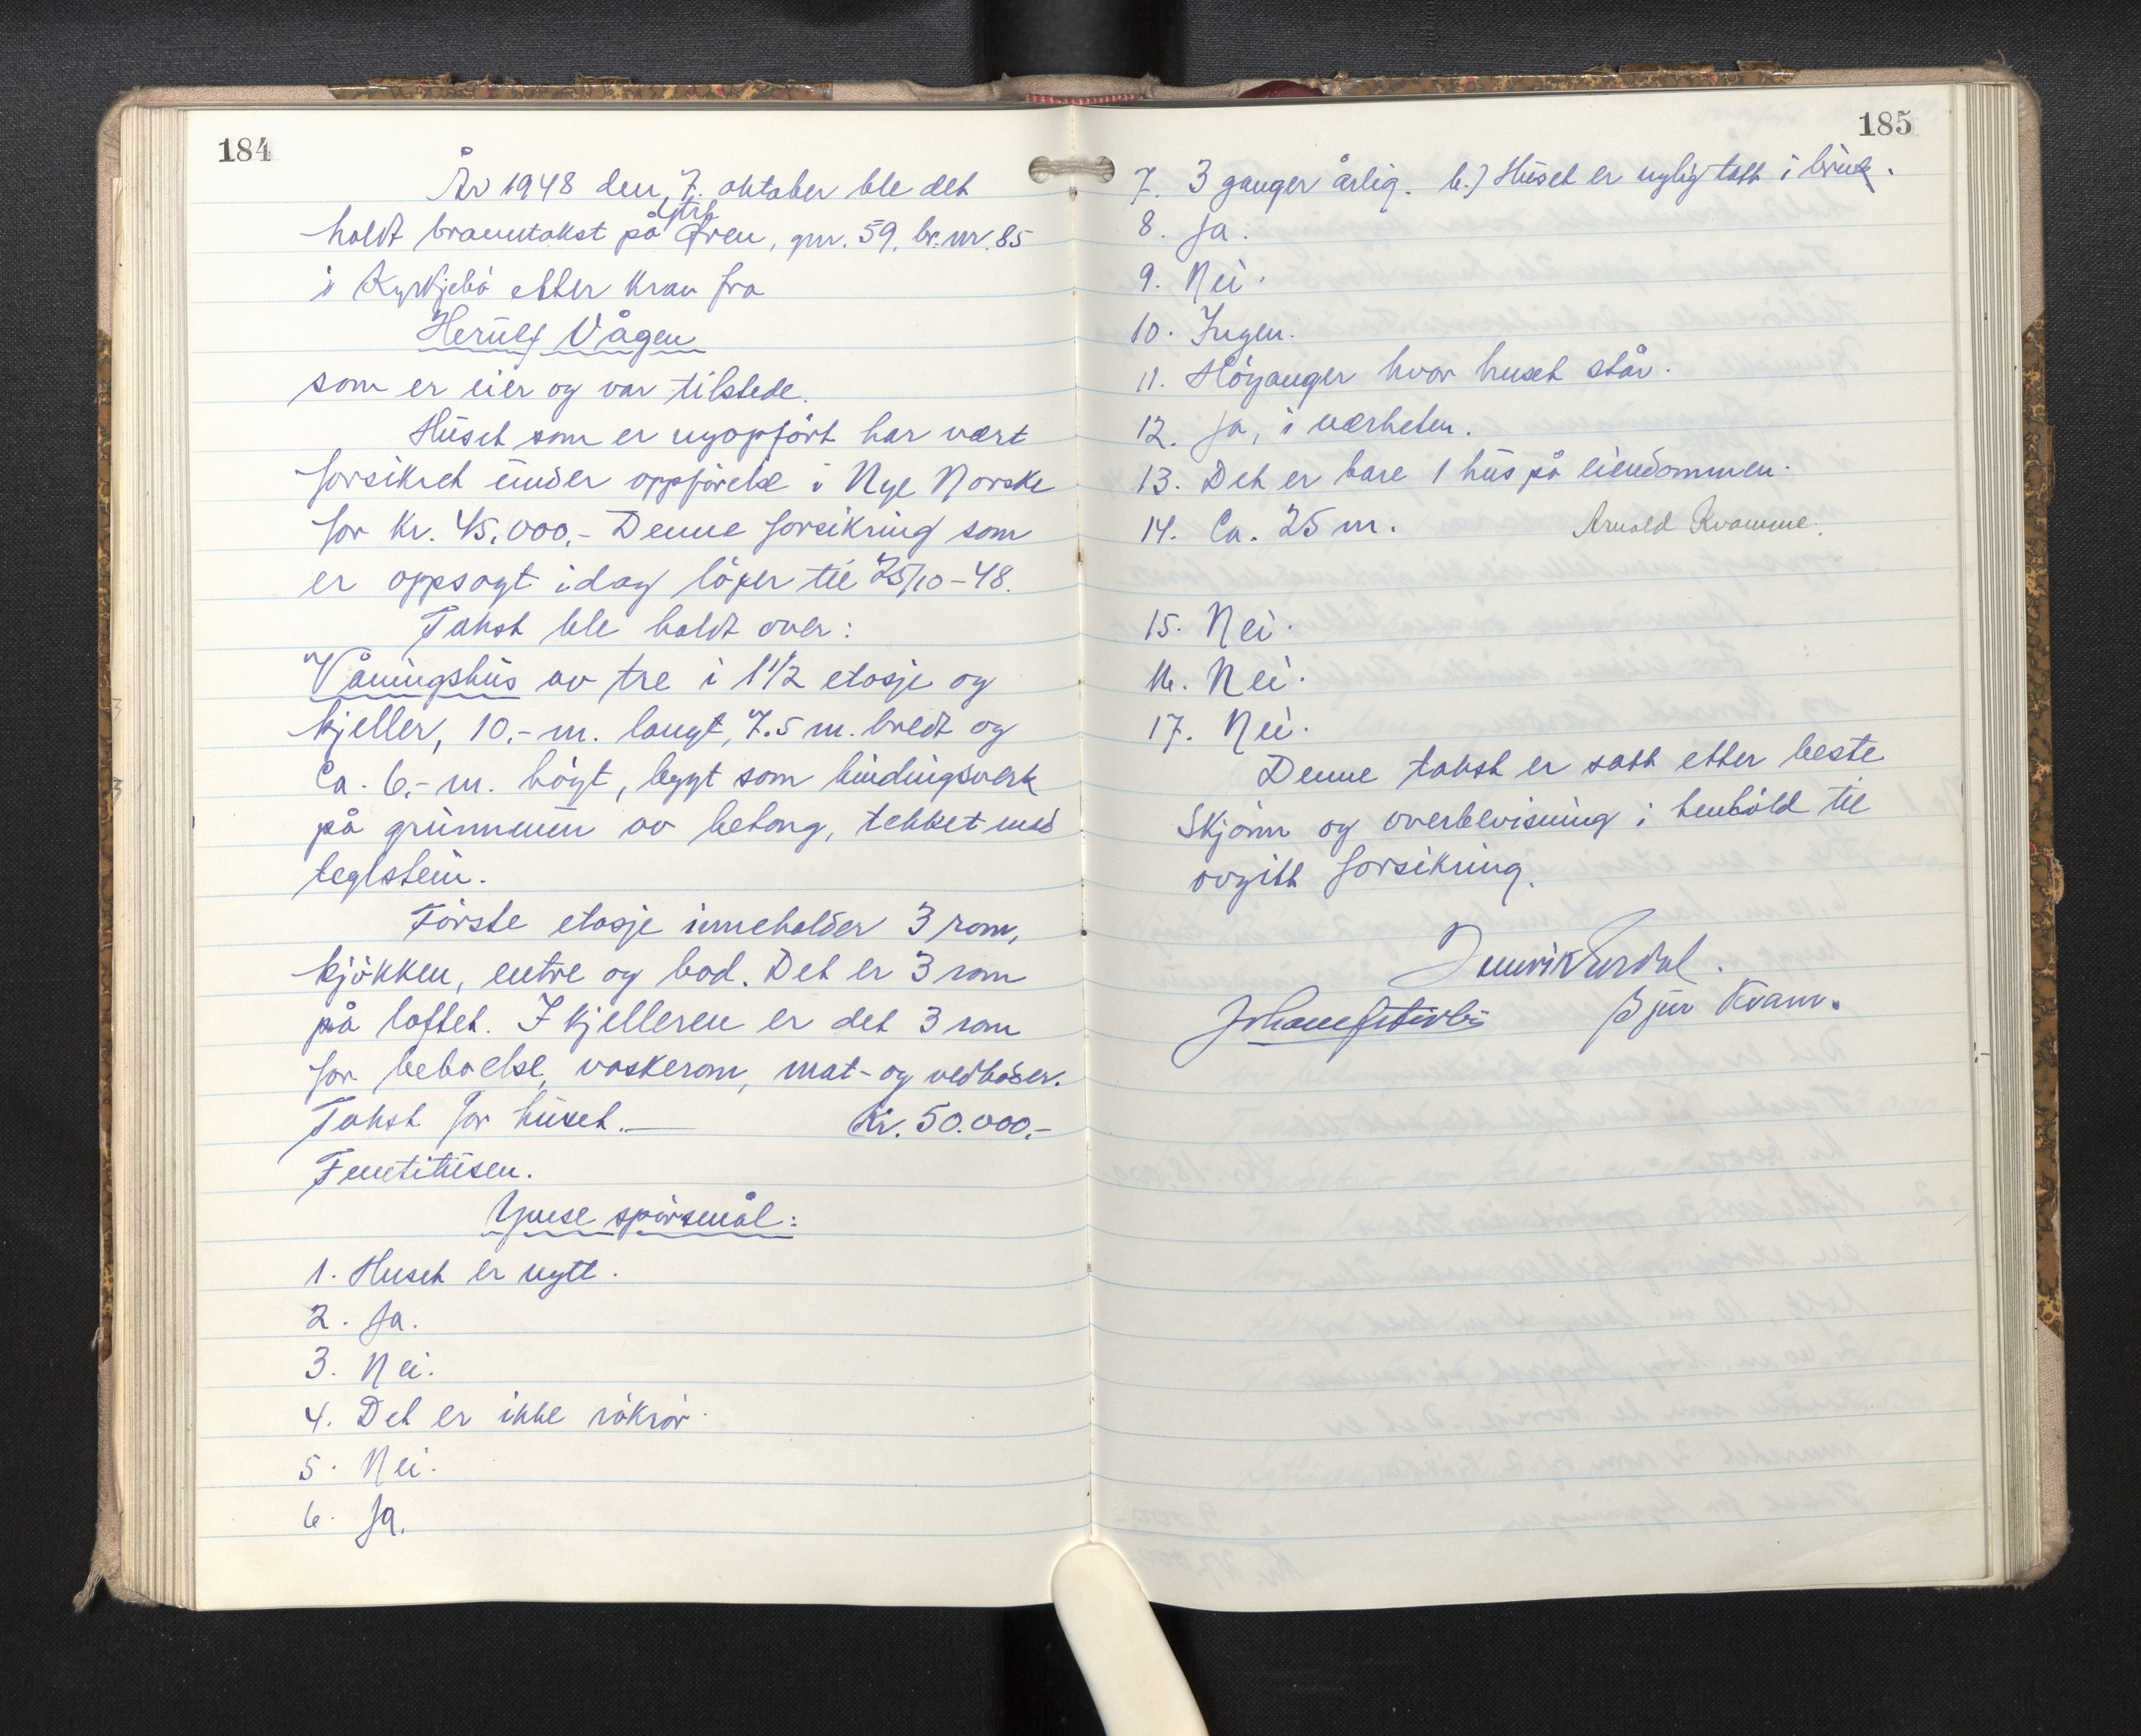 184
År 1948 den 7. oktober ble det
holdt branntakst på Ytre Øren, gnr. 59, br. nr. 85
i Kyrkjebø etter krav fra
Herulf Vågen
som er eier og var tilstede.
Huset som er nyoppfört har vært
forsikret under oppförelse i Nye Norske
for kr. 45.000.- Denne forsikring som
er oppsagt idag löper til 25/10-48.
Takst ble holdt over:
Våningshus av tre i 1 1/2 etasje og
kjeller, 10.- m. langt, 7.5 m. bredt og
Ca. 6.- m. högt, bygt som bindingsverk
på grunnmur av betong, tekket med
teglstein.
Förste etasje inneholder 3 rom,
kjökken, entre og bad. Det er 3 rom
på loftet. I kjelleren er det 3 rom
for beboelse, vaskerom, mat- og vedboder.
Takst for huset.— Kr. 50.000.-
Femtitusen.
Ymse spörsmål:
1. Huset er nytt.
2. Ja.
3. Nei.
4. Det er ikke rökrör.
5. Nei.
6. Ja.
185
7. 3 ganger årlig. b.) Huset er nylig tatt i bruk.
8. Ja.
9. Nei.
10. Ingen.
11. Höyanger hvor huset står.
12. Ja, i nærheten.
13. Det er bare 1 hus på eiendommen.
14. Ca. 25 m. Arnold Kvamme.
15. Nei.
16. Nei.
17. Nei.
Denne takst er satt etter beste
Skjönn og overbevisning i henhold til
avgitt forsikring.
Bjur Kvam.